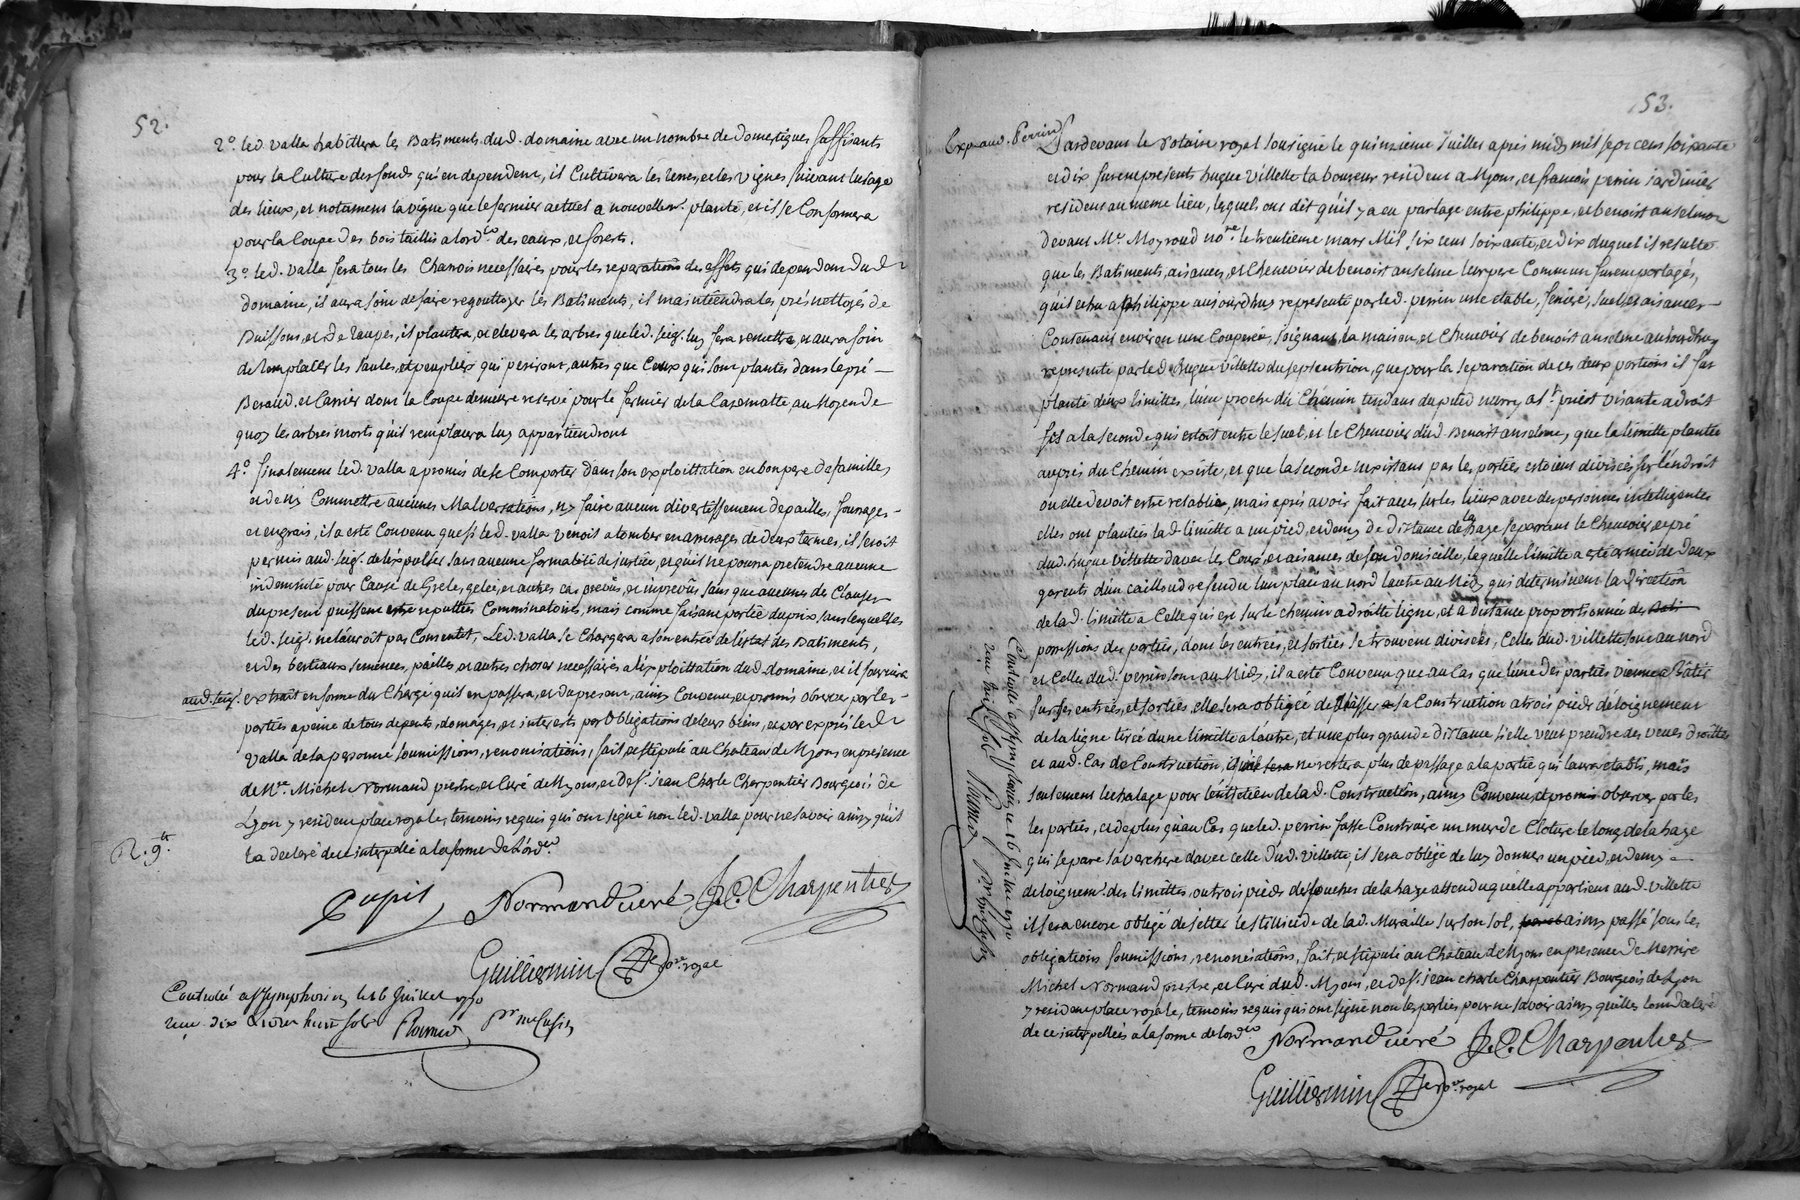 52.
2.° led. valla habittera les Batiments dud. domaine avec un nombre de domestiques suffisants
pour la Culture des fonds qui en dependent, il Cultivera les terres, et les vignes suivant lusage
des lieux, et notament la vigne que le fermier actuel a nouvellem.t planté, et il se Conformera
pour la Coupe des bois taillis a lord.ce des eaux, et forests.
3.° led. valla fera tous les Charrois necessaires pour les reparations des effets qui dependent dud.
domaine, il aura soin de faire regouttoyer les Batiments, il maintiendra les prés nettoyés de
Buissons, et de taupes, il plantera, et elevera les arbres que led. seig.r luy fera remettre, et aura soin
de remplacer les saules, et peupliers qui periront, autres que Ceux qui sont plantés dans le pré
Beraud, et Carrier dont la Coupe demeure reservé pour le fermier de la Cazematte, au Moyen de
quoy les arbres morts qu'il remplacera luy appartiendront
4.° finalement led. valla a promis de se Comporter dans son exploittation en bon pere de famille,
et de ny Commettre aucunes Malversations, ny faire aucun divertissement de pailles, fourages
et engrais, il a esté Convenu que si led. valla venoit a tomber en arrerages de deux termes, il seroit
permis aud. seig.r de l'expulser sans aucune formalité de justice, et qu'il ne pourra pretendre aucune
indemnité pour Cause de Grele, gelée, et autres cas prevûs, et imprevûs sans que aucunes des Clauses
du present puissent estre reputtées Comminatoires, mais comme faisant partie du prix, sans lesquelles
led. seig.r ne l'auroit pas Consentit, Led. valla se Chargera a son entrée de l'estat des Batiments,
et des bestiaux semences, pailles et autres choses necessaires a l'exploittation dud. domaine, et il fournira
aud. seig.r extrait en forme du Chargé qu'il en passera, et du present, ainsy Convenu, et promis observer par les
parties a peine de tous depents, domages, et interests par Obligations de leurs biens, et par exprés led.
valla de sa personne soumissions, renonciations, fait, et stipulé au Chateau de Myons en presence
de M.re Michel Normand prestre, et Curé de Myons, et de s.r jean Charle Charpentier Bourgeois de
Lyon y resident place royale, temoins requis qui ont signé non led. valla pour ne savoir ainsy qu'il
la declaré de ce interpellé a la forme de l'ord.ce
R. 9.tt
Pupil Normand curé J. C. Charpentier
Guillermin no.re royal
Controllé a S.t Symphorien le 16 Juillet 1770
reçu dix livres huit sols
153.
Exp. aud. Perrin
Pardevant le Notaire royal soussigné le quinzieme juillet apres midy mil sept cens soixante
et dix furent presents hugue villette laboureur resident a Myons, et francois perrin jardinier
resident au meme lieu, lesquels ont dit qu'il y a eu partage entre philippe, et benoist anselme
devant M.e Moyroud no.re le trentieme mars Mil sept cent soixante, et dix duquel il resulte
que les Batiments, aisances, et Chenevier de benoist anselme leur pere Commun furent partagés,
qu'il echu a philippe aujourdhuy representé par led. perrin une etable, feniere, suel, et aisances
Contenant environ une Couperée, joignant la maison, et Chenevier de benoist anselme aujourdhuy
representé par led. hugue villette du septentrion, que pour la separation de ces deux portions il fut
planté deux limittes, l'une proche du Chemin tendant du puted murry a S.t priest visante a droit
fil a la seconde qui estoit entre le suel, et le Chenevier dud. Benoist anselme, que la limitte plantée
auprés du Chemin existe, et que la seconde n'existant pas les parties estoient divisées sur l'endroit
ou elle devoit estre retablie, mais aprés avoir fait aller sur les lieux avec des personnes intelligentes
elles ont plantés lad. limitte a un pied, et demy de distance de la haye separant le Chenevier, et pré
dud. hugue villette davec les Cour, et aisances de son domicille, laquelle limitte a esté armée de deux
garents d'un cailloud refendu l'un placé au nord l'autre au Midy qui determinent la direction
de lad. limitte a Celle qui est sur le chemin a droitte ligne, et a distance proportionnée des
possessions des parties, dont les entrées, et sorties se trouvent divisées, Celles dud. villette sont au nord
et Celles dud. perrin sont au Midy, il a esté Convenu que au Cas que l'une des parties vienne a Bâtir
sur ses entrées, et sorties elle sera obligée de placer sa Construction a trois pieds d'éloignement
de la ligne tirée d'une limitte a l'autre, et une plus grande distance si elle veut prendre des veues droittes
et aud. Cas de Construction, il ne restera plus de passage a la partie qui l'aura etabli, mais
seulement l'echalage pour l'entretien de lad. Construction, ainsy Convenu, et promis observer par les
parties, et de plus qu'au Cas que led. perrin fasse Construire un mur de Cloture le long de la haye
qui separe sa verchere davec celle dud. villette, il sera obligé de luy donner un pied, et demy
d'eloignem.t des limittes, ou trois pieds des souches de la haye attendu qu'elle appartient aud. villette
il sera encore obligé de jetter le stillicide de lad. Muraille sur son sol, ainsy passé sous les
obligations soumissions, renonciations, fait, et stipulé au Chateau de Myons en presence de Messire
Michel Normand prestre, et Curé dud. Myons, et de s.r jean charle Charpentier Bourgeois de Lyon
y resident place royale, temoins requis qui ont signé non les parties pour ne savoir ainsy quelles l'ont declaré
de ce interpellées a la forme de l'ord.ce
Normand curé J. C. Charpentier
Guillermin no.re royal
Controllé a S.t Symphorien le 16 Juillet 1770